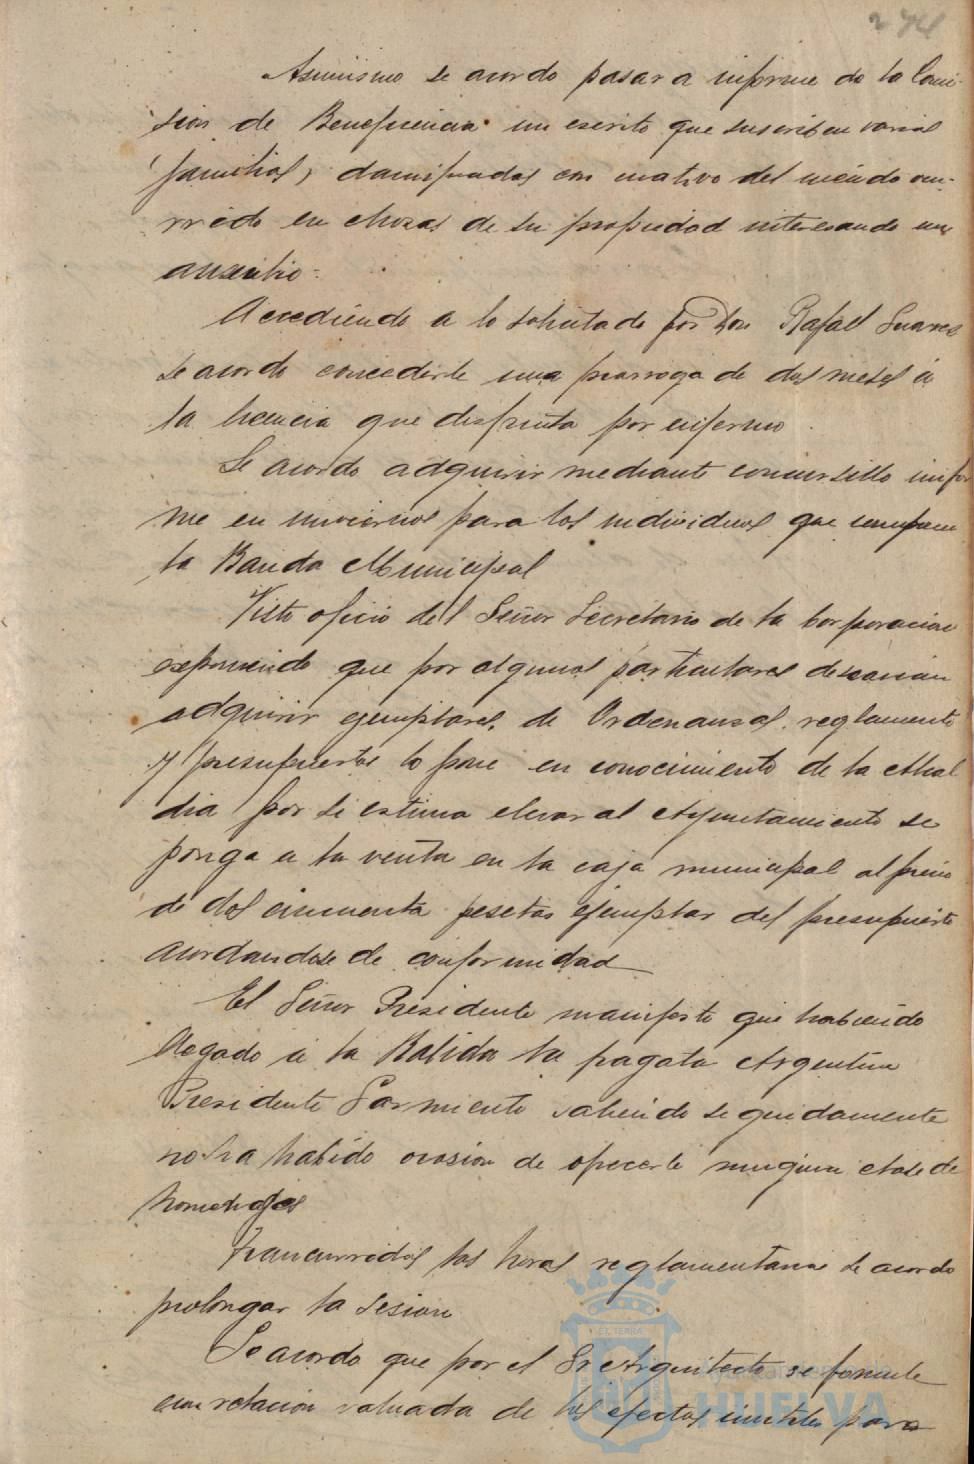 274
Asimismo se acordo pasar a informe de la Comi-
sion de Beneficencia un escrito que suscriben varias
familias, damificadas con motivo del incendio ocu-
rrido en chozas de su propiedad interesando un
auxilio.
Accediendo a lo solicitado por Don Rafael Suarez
se acordo concederle una prorroga de dos meses á
la licencia que disfruta por enfermo.
Se acordo adquirir mediante concursillo unifor
me en invierno para los individuos que componen
la Banda Municipal
Visto oficio del Señor Secretario de la Corporacion
exponiendo que por algunos particulares desearian
adquirir ejemplares de Ordenanzas reglamento
y presupuestos lo pone en conocimiento de la Alcal
dia por si estima elevar al Ayuntamiento se
ponga a la venta en la caja municipal al precio
de dos cincuenta pesetas ejemplar del presupuesto
acordandose de conformidad
El Señor Presidente manifesto que habiendo
llegado á la Rabida la fragata Argentina
Presidente Sarmiento saliendo seguidamente
no ha habido ocasion de ofrecerle ninguna clase de
homenajes
Trancurridas las horas reglamentarias se acordo
prolongar la sesion
Se acordo que por el Sr Arquitecto se formule
una relacion valuada de los efectos inutiles para
Ayuntamiento de
HUELVA